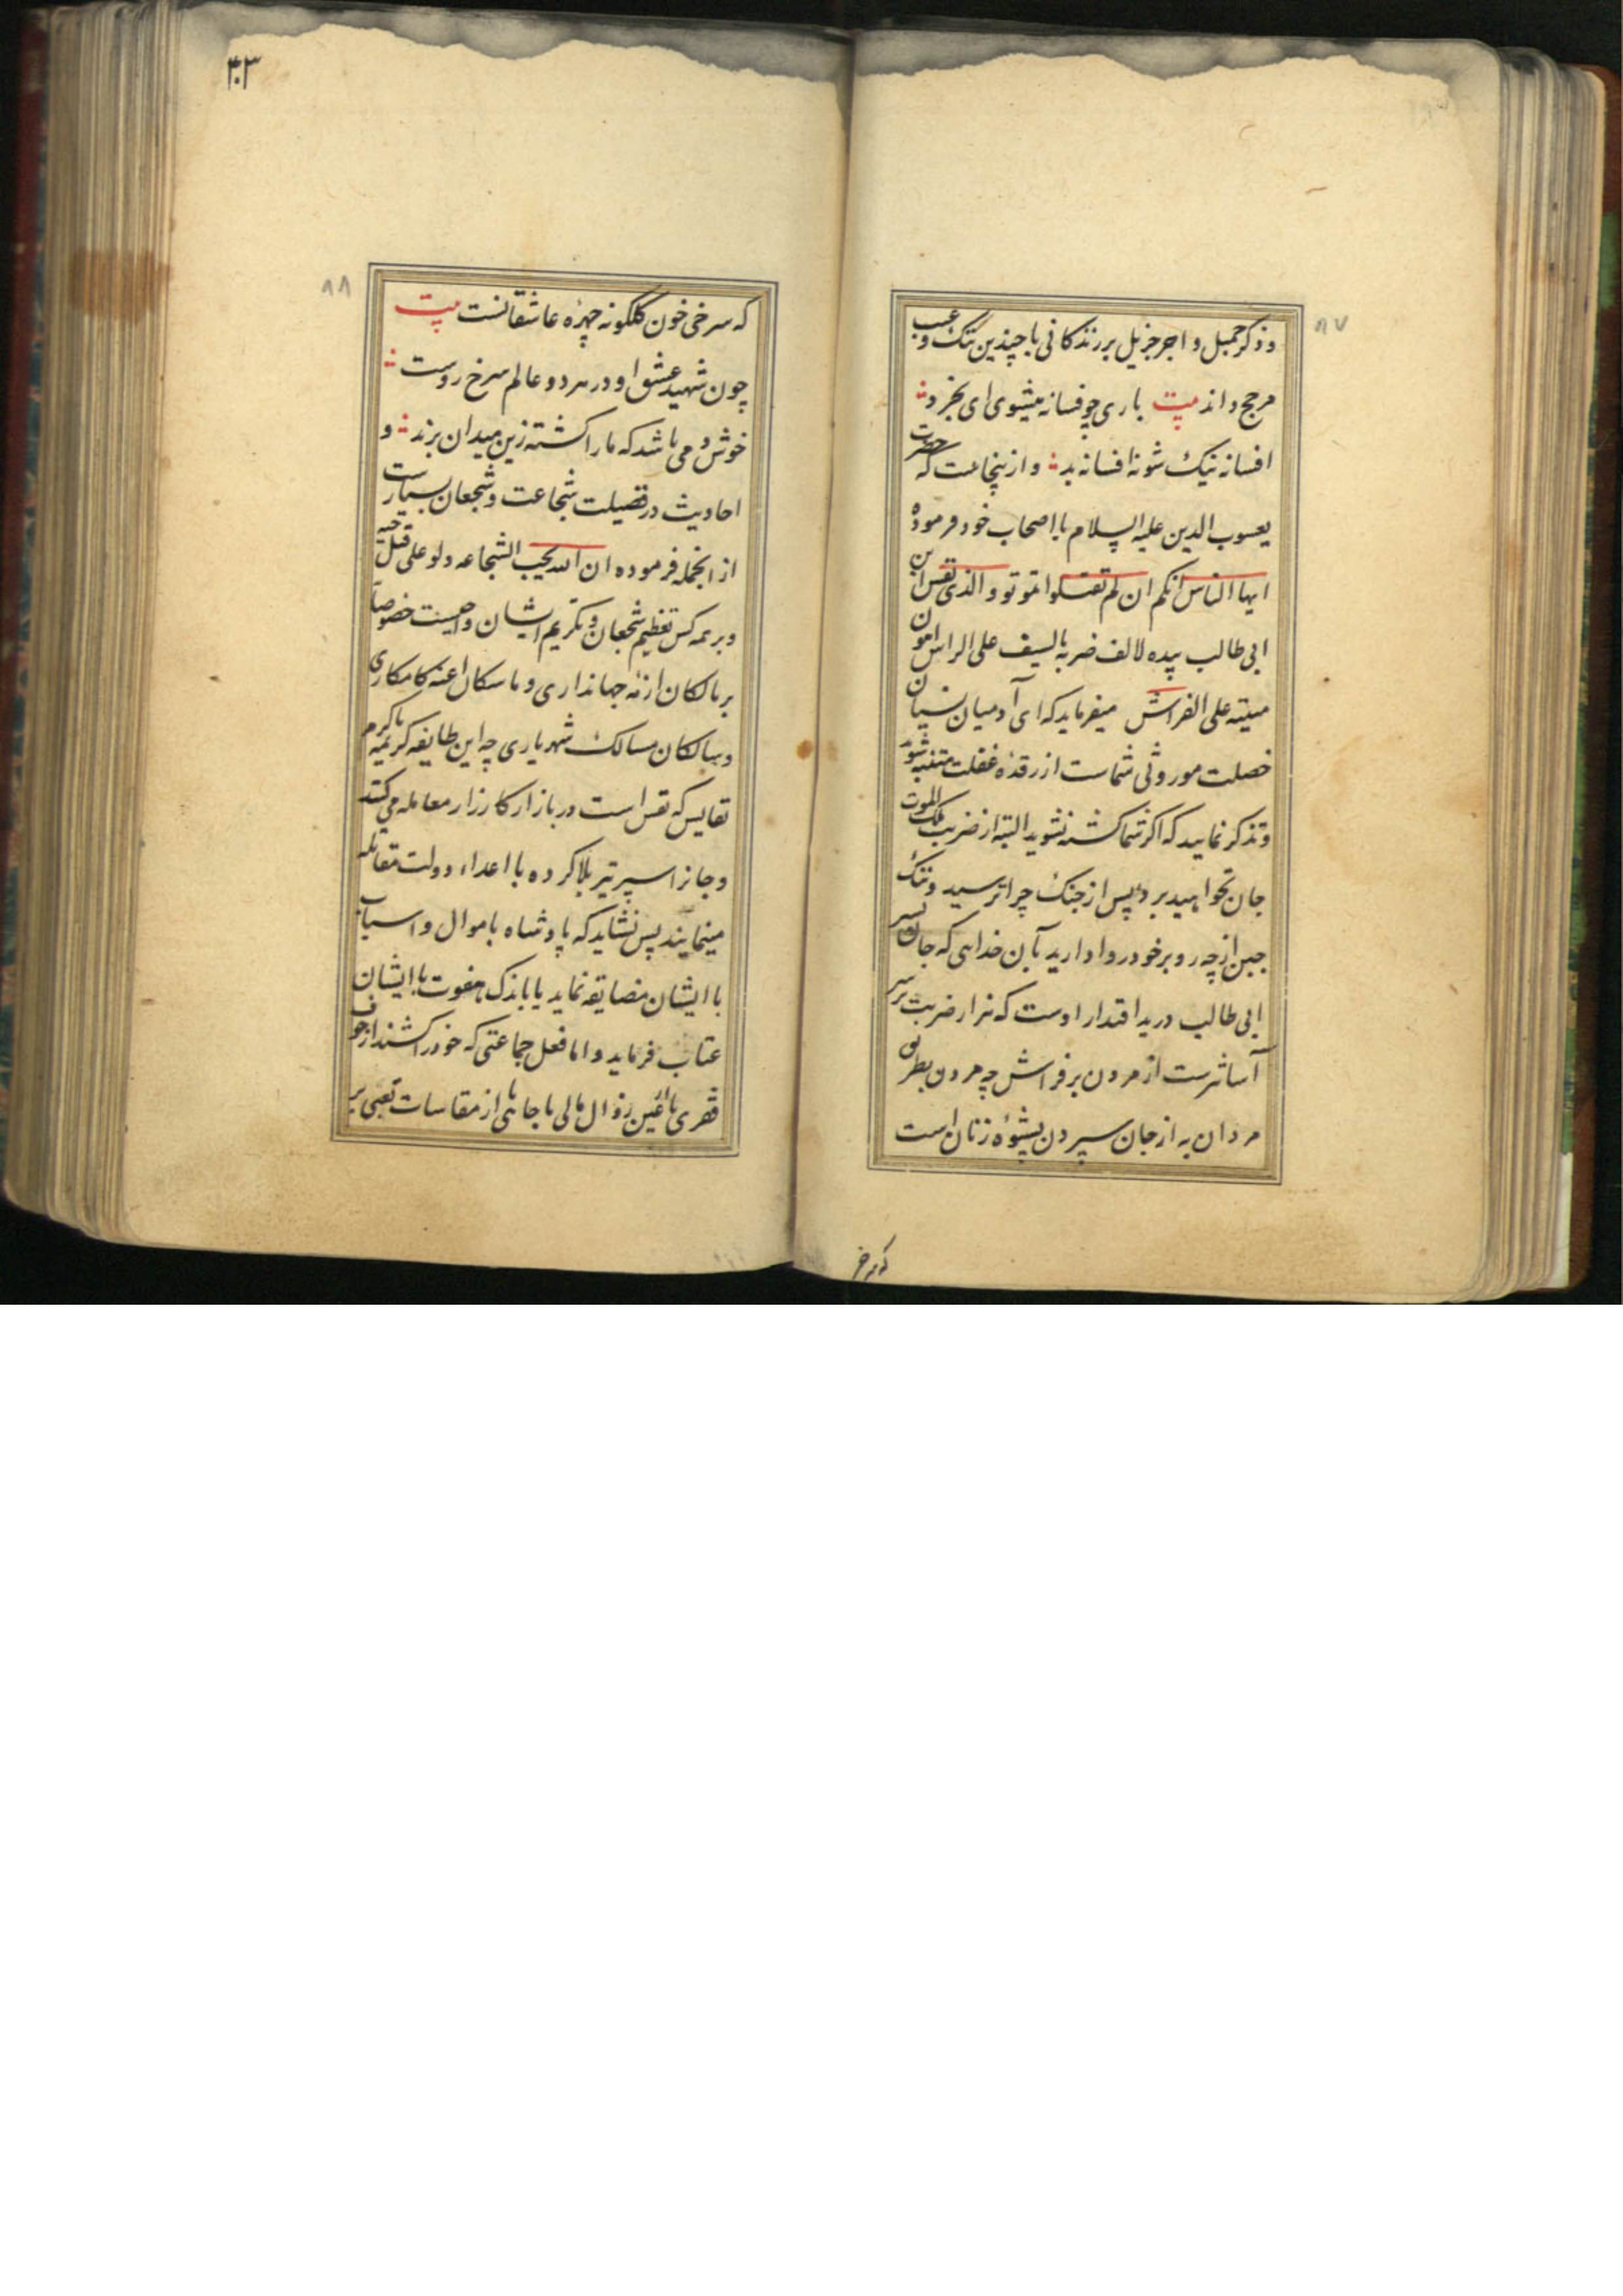 ۸۷
و ذکر جمیل و اجر جزیل بر زندکانی با چندین ننک و عیب
مرجح داند بیت باری چو فسانه میشوی ای بخرد
افسانه نیک شو نه افسانه بد و از ینجاست که حضرت
یعسوب الدین علیه السلام با اصحاب خود فرموده
ایها الناس انکم ان لم تقتلوا تموتو و الذی نفس ابن
ابی طالب بیده لالف ضربة بالسیف علی الراس اهون
میتة علی الفراش میفرماید که ای آدمیان نسیان
خصلت موروثی شماست از رقده غفلت متنبه شوید
و تذکر نمایید که اکر شما کشته نشوید البته از ضربت ملک الموت
جان نخواهید برد پس از جنک چرا ترسید و ننک
جبن از چه رو بر خود روا دارید بآن خدایی که جان پسر
ابی طالب در ید اقتدار اوست که هزار ضربت بر سر
آسانترست از مردن بر فراش چه مردن بطریق
مردان به از جان سپردن بشیوه زنان است
که سرخی
۴۰۳
۸۸
که سرخی خون کلکونه چهره عاشقانست بیت
چون شهید عشق او در هر دو عالم سرخ روست
خوش دمی باشد که ما را کشته زین میدان برند و
احادیث در فضیلت شجاعت و شجعان بسیارست
از انجمله فرموده ان الله یحب الشجاعه ولو علی قتل حیه
و بر همه کس تعظیم شجعان و تکریم ایشان واجبست خصوصا
بر مالکان ازمه جهانداری و ماسکان اعنه کامکاری
و سالکان مسالک شهریاری چه این طایفه کریمه باکرم
نفایس که نفس است در بازار کارزار معامله می کنند
و جانرا سپر تیر بلا کرده با اعداء دولت مقاتله
مینمایند پس نشاید که پادشاه باموال و اسباب
با ایشان مضایقه نماید یا باندک هفوت با ایشان
عتاب فرماید و اما فعل جماعتی که خود را کشند از خوف
فقری یا غین زوال مالی یا جاهی یا از مقاسات تعبی بر